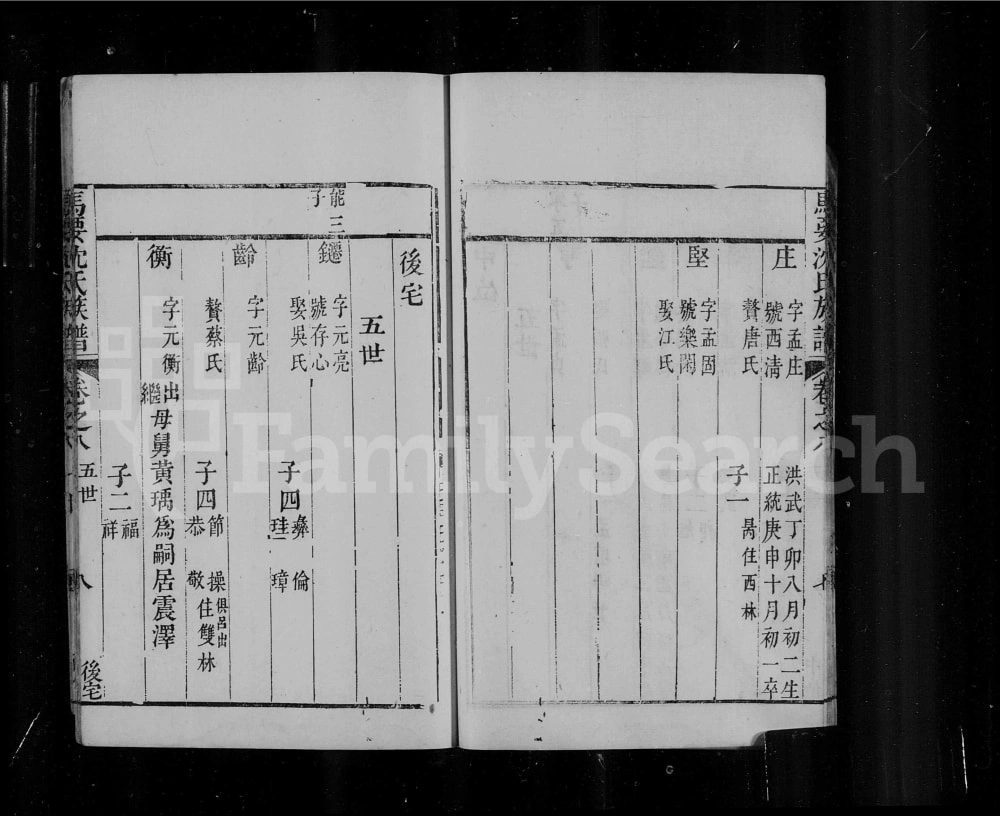 庄
字孟庄
號西清
贅唐氏
洪武丁卯八月初二生
正統庚申十月初一卒
子一
昺住西林
堅
字孟固
號樂閑
娶江氏
後宅
五世
能三
子
字元亮
號存心
娶吳氏
子四
彝 倫
珪 璋
齡
字元齡
贅蔡氏
子四
節 操俱呂出
恭 敬住雙林
衡
字元衡
出繼母舅黃瑀為嗣居震澤
子二
福
祥
馬要沈氏族譜
卷之八
五世
八
後宅
FamilySearch